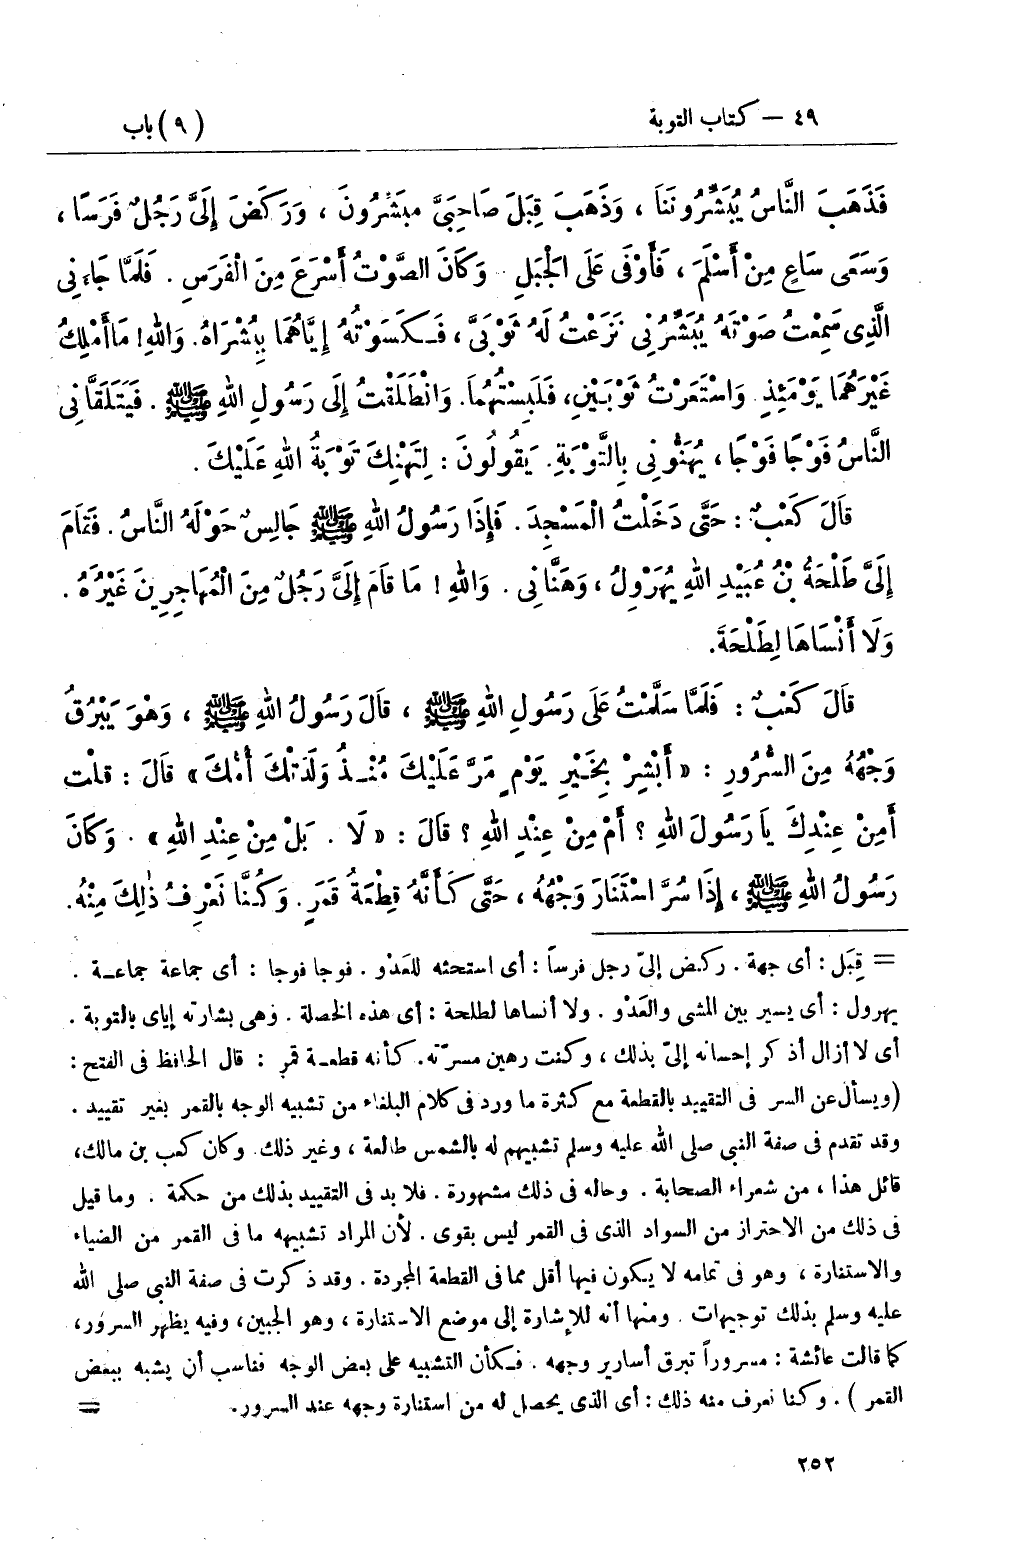 ٤٩ – كتاب التوبة
(٩) باب
فَذَهَبَ النَّاسُ يُبَشِّرُونَنَا ، وَذَهَبَ قِبَلَ صَاحِبَىَّ مبَشِّرُونَ ، وَرَكَضَ إِلَىَّ رَجُلٌ فَرَسًا ،
وَسَعَى سَاعٍ مِنْ أَسْلَمَ ، فَأَوْفَى عَلَى الْجَبَلِ . وَكَانَ الصَّوْتُ أَسْرَعَ مِنَ الْفَرَسِ . فَلَمَّا جَاءَنِى
الَّذِى سَمِعْتُ صَوْتَهُ يُبَشِّرُنِى نَزَعْتُ لَهُ ثَوْبَىَّ ، فَكَسَوْتُهُ إِيَّاهُمَا بِبُشْرَاهُ. وَاللهِ! مَا أَمْلِكُ
غَيْرَهُمَا يَوْمَئِذٍ. وَاسْتَعَرْتُ ثَوْبَيْنِ، فَلَبِسْتُهُمَا. وَانْطَلَقْتُ إِلَى رَسُولِ اللهِ ﷺ . فَيَتَلَقَّانِى
النَّاسُ فَوْجًا فَوْجًا ، يُهَنُّونِى بِالتَّوْبَةِ. يَقُولُونَ : لِتَهْنِكَ تَوْبَةُ اللهِ عَلَيْكَ .
قَالَ كَعْبٌ : حَتَّى دَخَلْتُ الْمَسْجِدَ . فَإِذَا رَسُولُ اللهِ ﷺ جَالِسٌ حَوْلَهُ النَّاسُ . فَقَامَ
إِلَىَّ طَلْحَةُ بْنُ عُبَيْدِ اللهِ يُهَرْوِلُ ، وَهَنَّانِى . وَاللهِ ! مَا قَامَ إِلَىَّ رَجُلٌ مِنَ الْمُهَاجِرِينَ غَيْرُهُ .
وَلَا أَنْسَاهَا لِطَلْحَةَ.
قَالَ كَعْبٌ : فَلَمَّا سَلَّمْتُ عَلَى رَسُولِ اللهِ ﷺ ، قَالَ رَسُولُ اللهِ ﷺ ، وَهُوَ يَبْرُقُ
وَجْهُهُ مِنَ السُّرُورِ : « أَبْشِرْ بِخَيْرِ يَوْمٍ مَرَّ عَلَيْكَ مُنْـذُ وَلَدَتْكَ أُمُّكَ » قَالَ : قلْت
أَمِنْ عِنْدِكَ يَا رَسُولَ اللهِ ؟ أَمْ مِنْ عِنْدِ اللهِ ؟ قَالَ : « لَا . بَلْ مِنْ عِنْدِ اللهِ » . وَكَانَ
رَسُولُ اللهِ ﷺ ، إِذَا سُرَّ اسْتَنَارَ وَجْهُهُ ، حَتَّى كَأَنَّهُ قِطْعَةُ قَمَرٍ . وَكُنَّا نَعْرِفُ ذٰلِكَ مِنْهُ.
= قِبَل : أى جهة . ركض إلىّ رجل فرساً : أى استحثه للعَدْو . فوجا فوجا : أى جماعة جماعـة .
يهرول : أى يسير بين المشى والعَدْو . ولا أنساها لطلحة : أى هذه الخصلة . وهى بشارته إياى بالتوبة .
أى لا أزال أذكر إحسانه إلىّ بذلك ، وكنت رهين مسرّته. كأنه قطعـة قمر : قال الحافظ فى الفتح :
(ويسأل عن السر فى التقييد بالقطعة مع كثرة ما ورد فى كلام البلغاء من تشبيه الوجه بالقمر بغير تقييد .
وقد تقدم فى صفة النبى صلى الله عليه وسلم تشبيههم له بالشمس طالعة ، وغير ذلك. وكان كعب بن مالك،
قائل هذا ، من شعراء الصحابة . وحاله فى ذلك مشهورة . فلا بد فى التقييد بذلك من حكمة . وما قيل
فى ذلك من الاحتراز من السواد الذى فى القمر ليس بقوى . لأن المراد تشبيهه ما فى القمر من الضياء
والاستنارة ، وهو فى تمامه لا يكون فيها أقل مما فى القطعة المجردة . وقد ذكرت فى صفة النبى صلى الله
عليه وسلم بذلك توجيهات . ومنها أنه للإشارة إلى موضع الاستنارة ، وهو الجبين، وفيه يظهر السرور،
كما قالت عائشة : مسروراً تبرق أسارير وجهه . فكأن التشبيه على بعض الوجه فناسب أن يشبه ببعض
القمر ) . وكنا نعرف منه ذلك : أى الذى يحصل له من استنارة وجهه عند السرور. =
٢٥٢